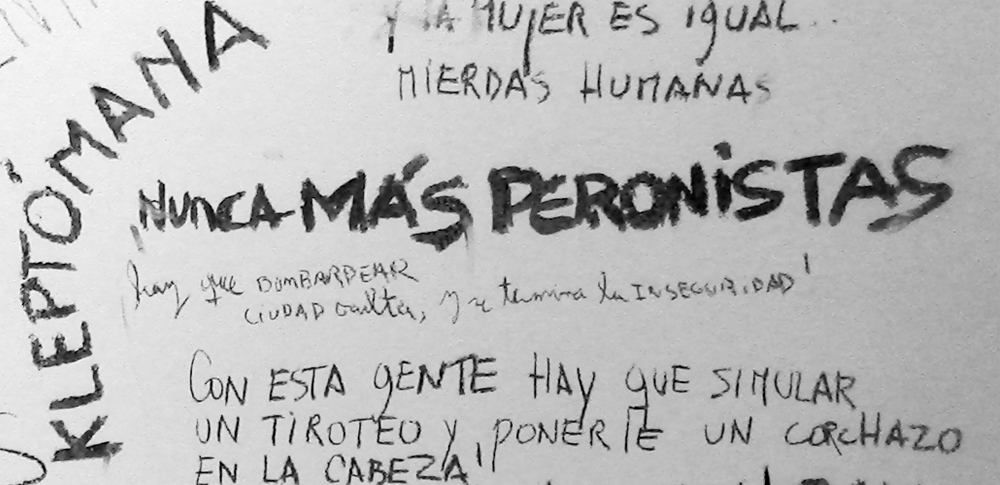 KLEPTÓMANA
Y LA MUJER ES IGUAL..
MIERDAS HUMANAS
¡NUNCA MÁS PERONISTAS
hay que BOMBARDEAR
CIUDAD oculta, y se termina la INSEGURIDAD'
CON ESTA GENTE HAY QUE SIMULAR
UN TIROTEO Y PONERLE UN CORCHAZO
EN LA CABEZA"